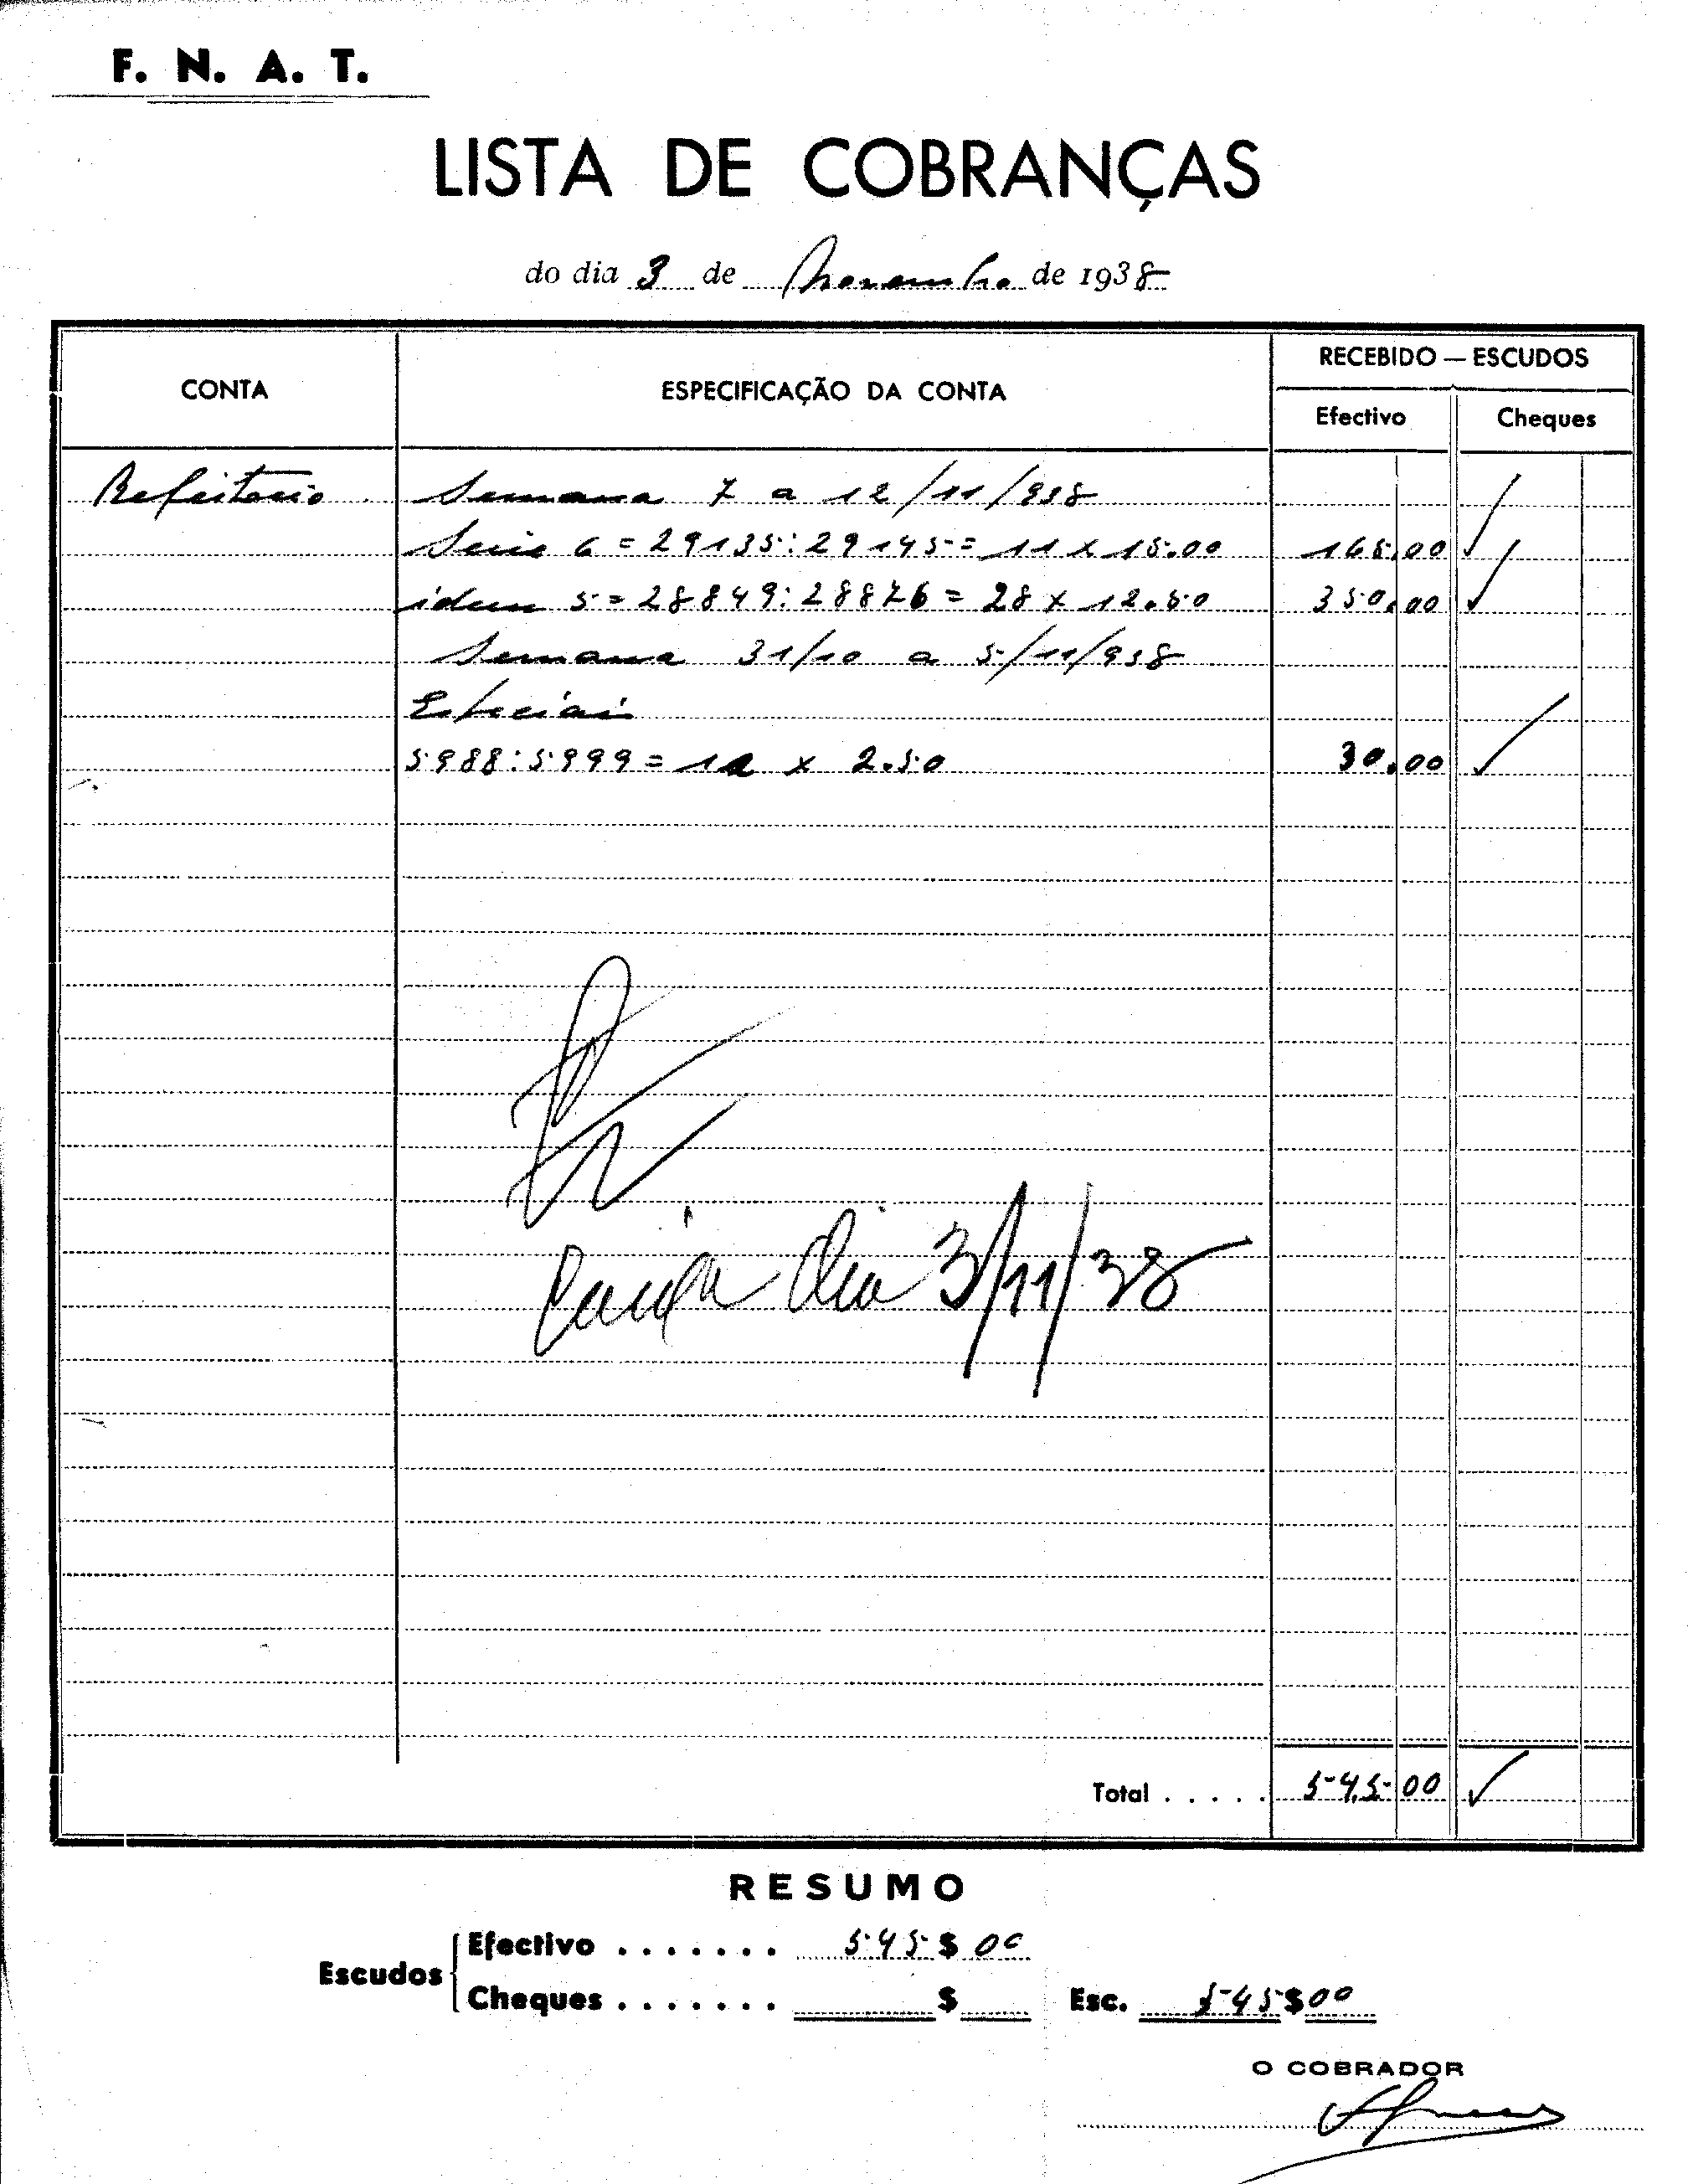 F. N. A. T.
LISTA DE COBRANÇAS
do dia 3 de Novembro de 1938
CONTA
ESPECIFICAÇÃO DA CONTA
RECEBIDO — ESCUDOS
Efectivo
Cheques
Refeitorio Semana 7 a 12/11/938
Serie 6 = 29135:29145 = 11 x 15.00 165,00
idem 5 = 28849:28876 = 28 x 12.50 350,00
Semana 31/10 a 5/11/938
Especiais
5988:5999 = 12 x 2.50 30,00
dia 3/11/38
Total ..... 545 00
RESUMO
Escudos
Efectivo ....... 545 $ 00
Cheques ....... $
Esc. 545 $ 00
O COBRADOR